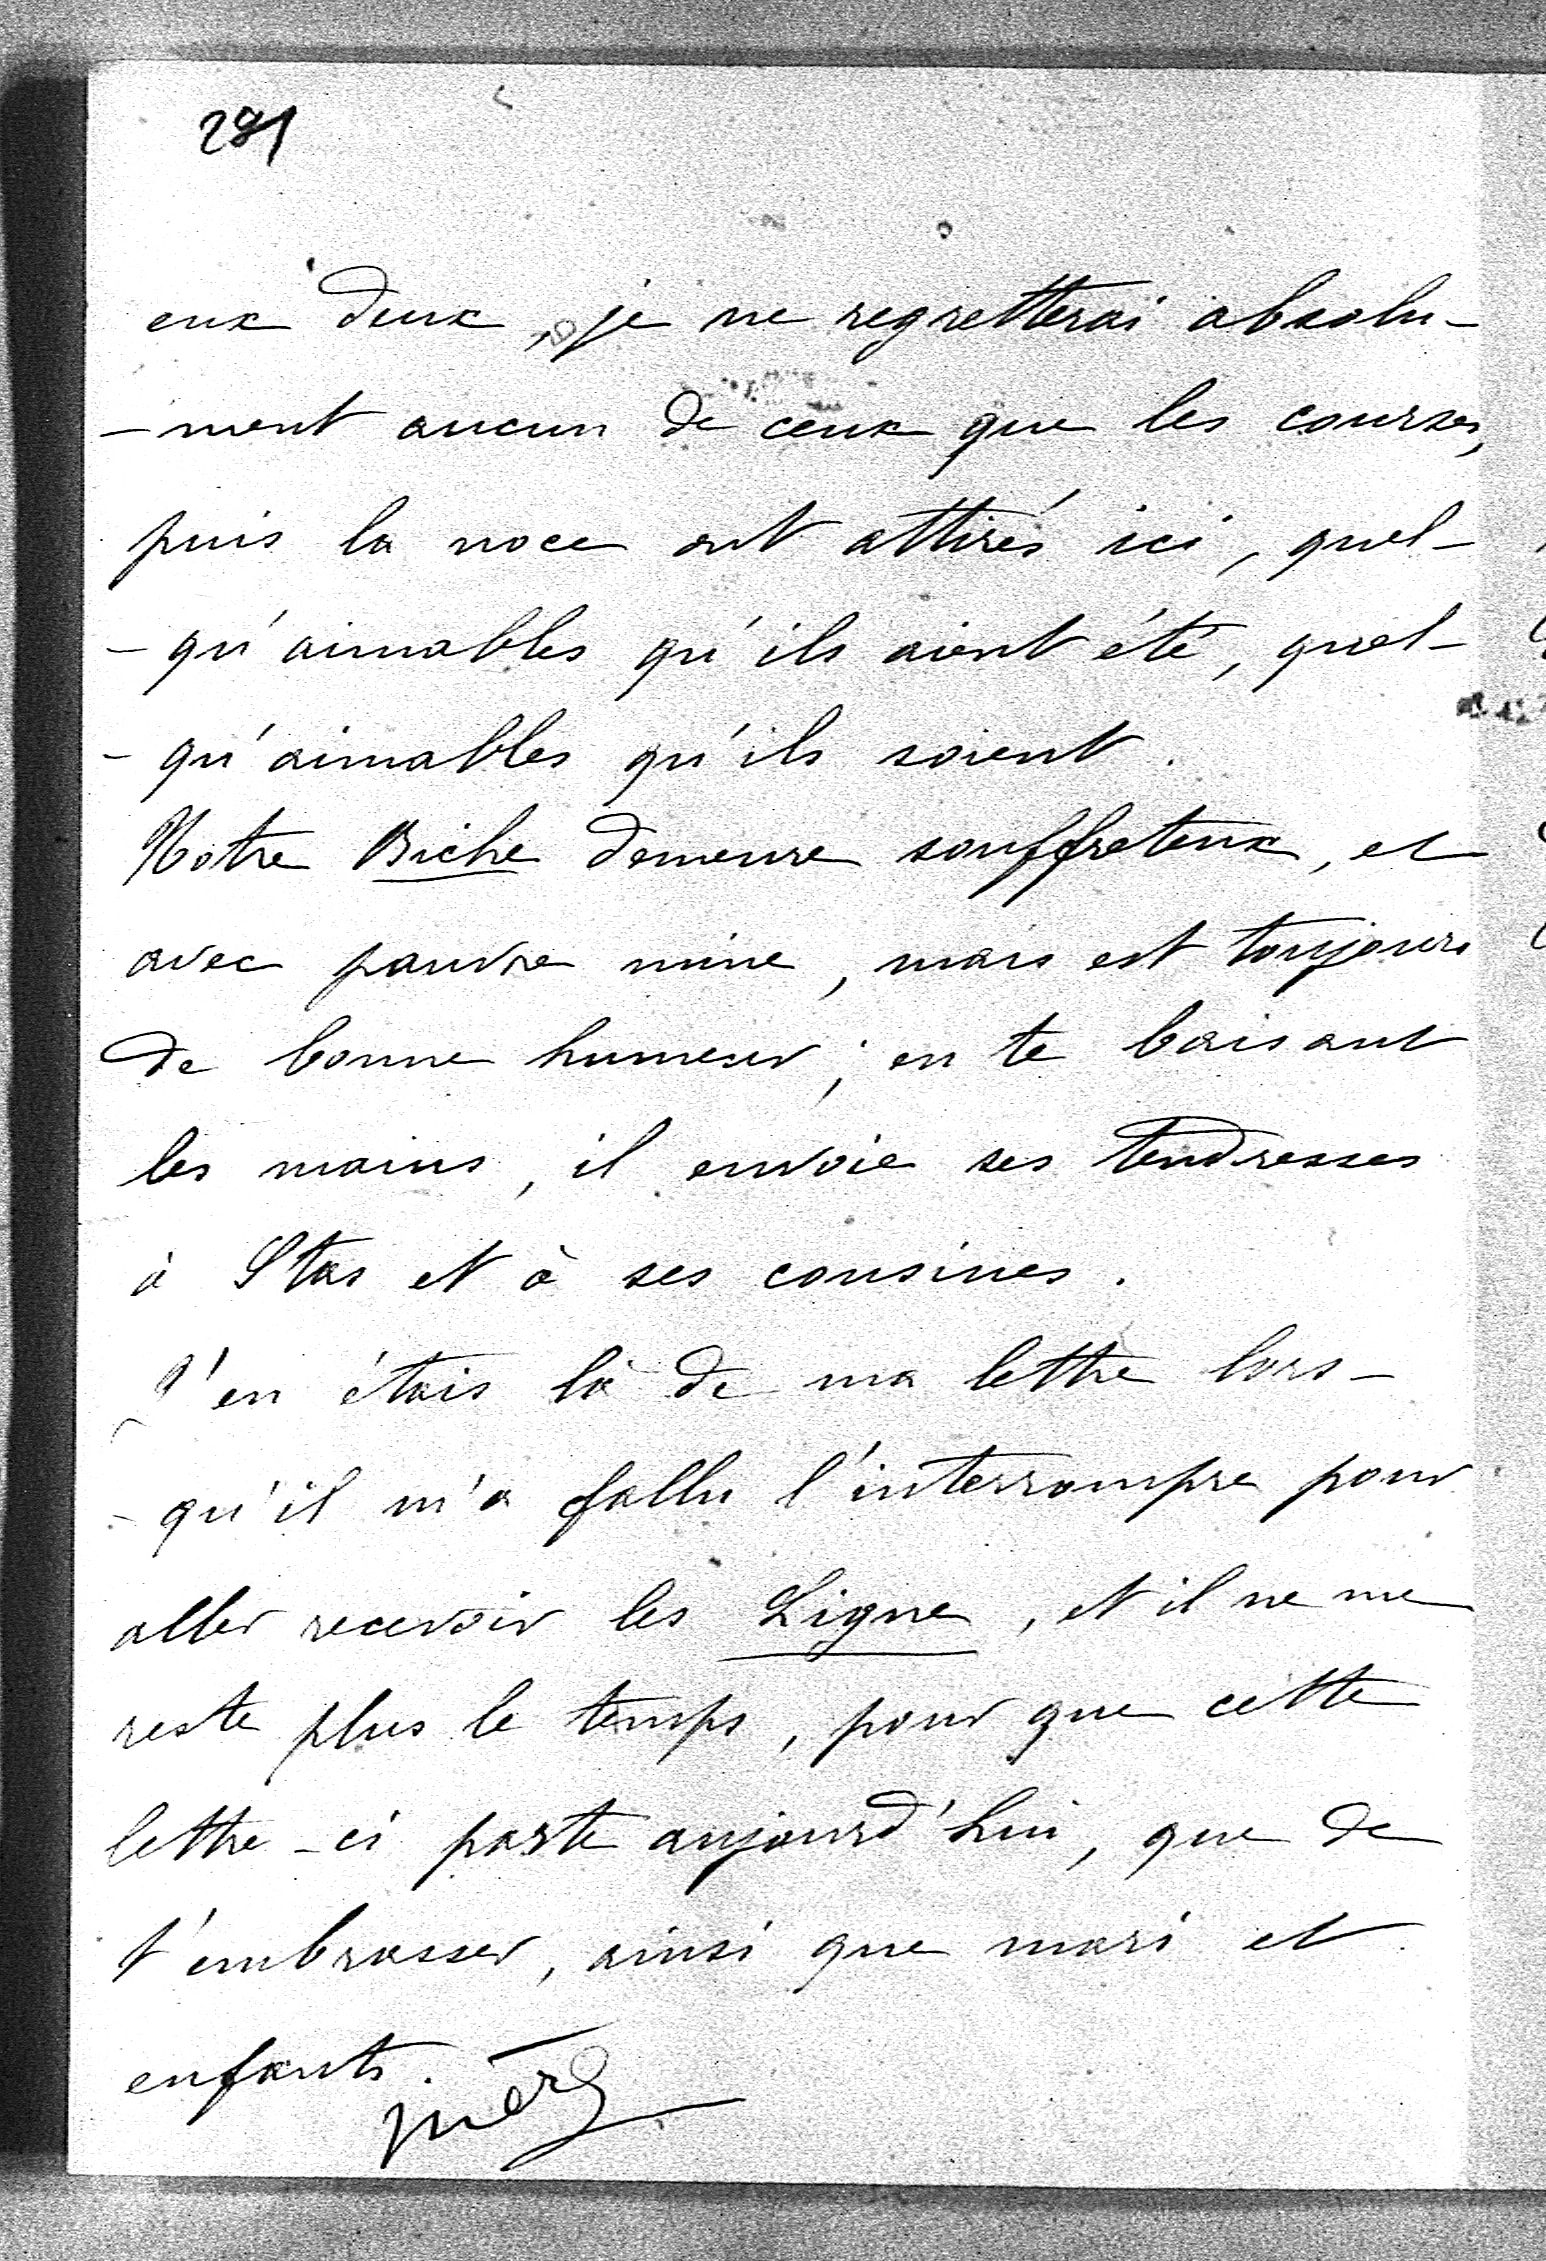 281
eux deux, je ne regretterai absolu-
-ment aucun de ceux que les courses,
puis la noce ont attirés ici, quel-
-qu'aimables qu'ils aient été, quel-
-qu'aimables qu'ils soient.
Notre Biche demeure souffreteux, et
avec pauvre mine, mais est toujours
de bonne humeur; en te baisant
les mains, il envoie ses tendresses
à Stas et à ses cousines.
J'en étais là de ma lettre lors-
-qu'il m'a fallu l'interrompre pour
aller recevoir les Ligne, et il ne me
reste plus le temps, pour que cette
lettre-ci parte aujourd'hui, que de
t'embrasser, ainsi que mari et
enfants.
mère